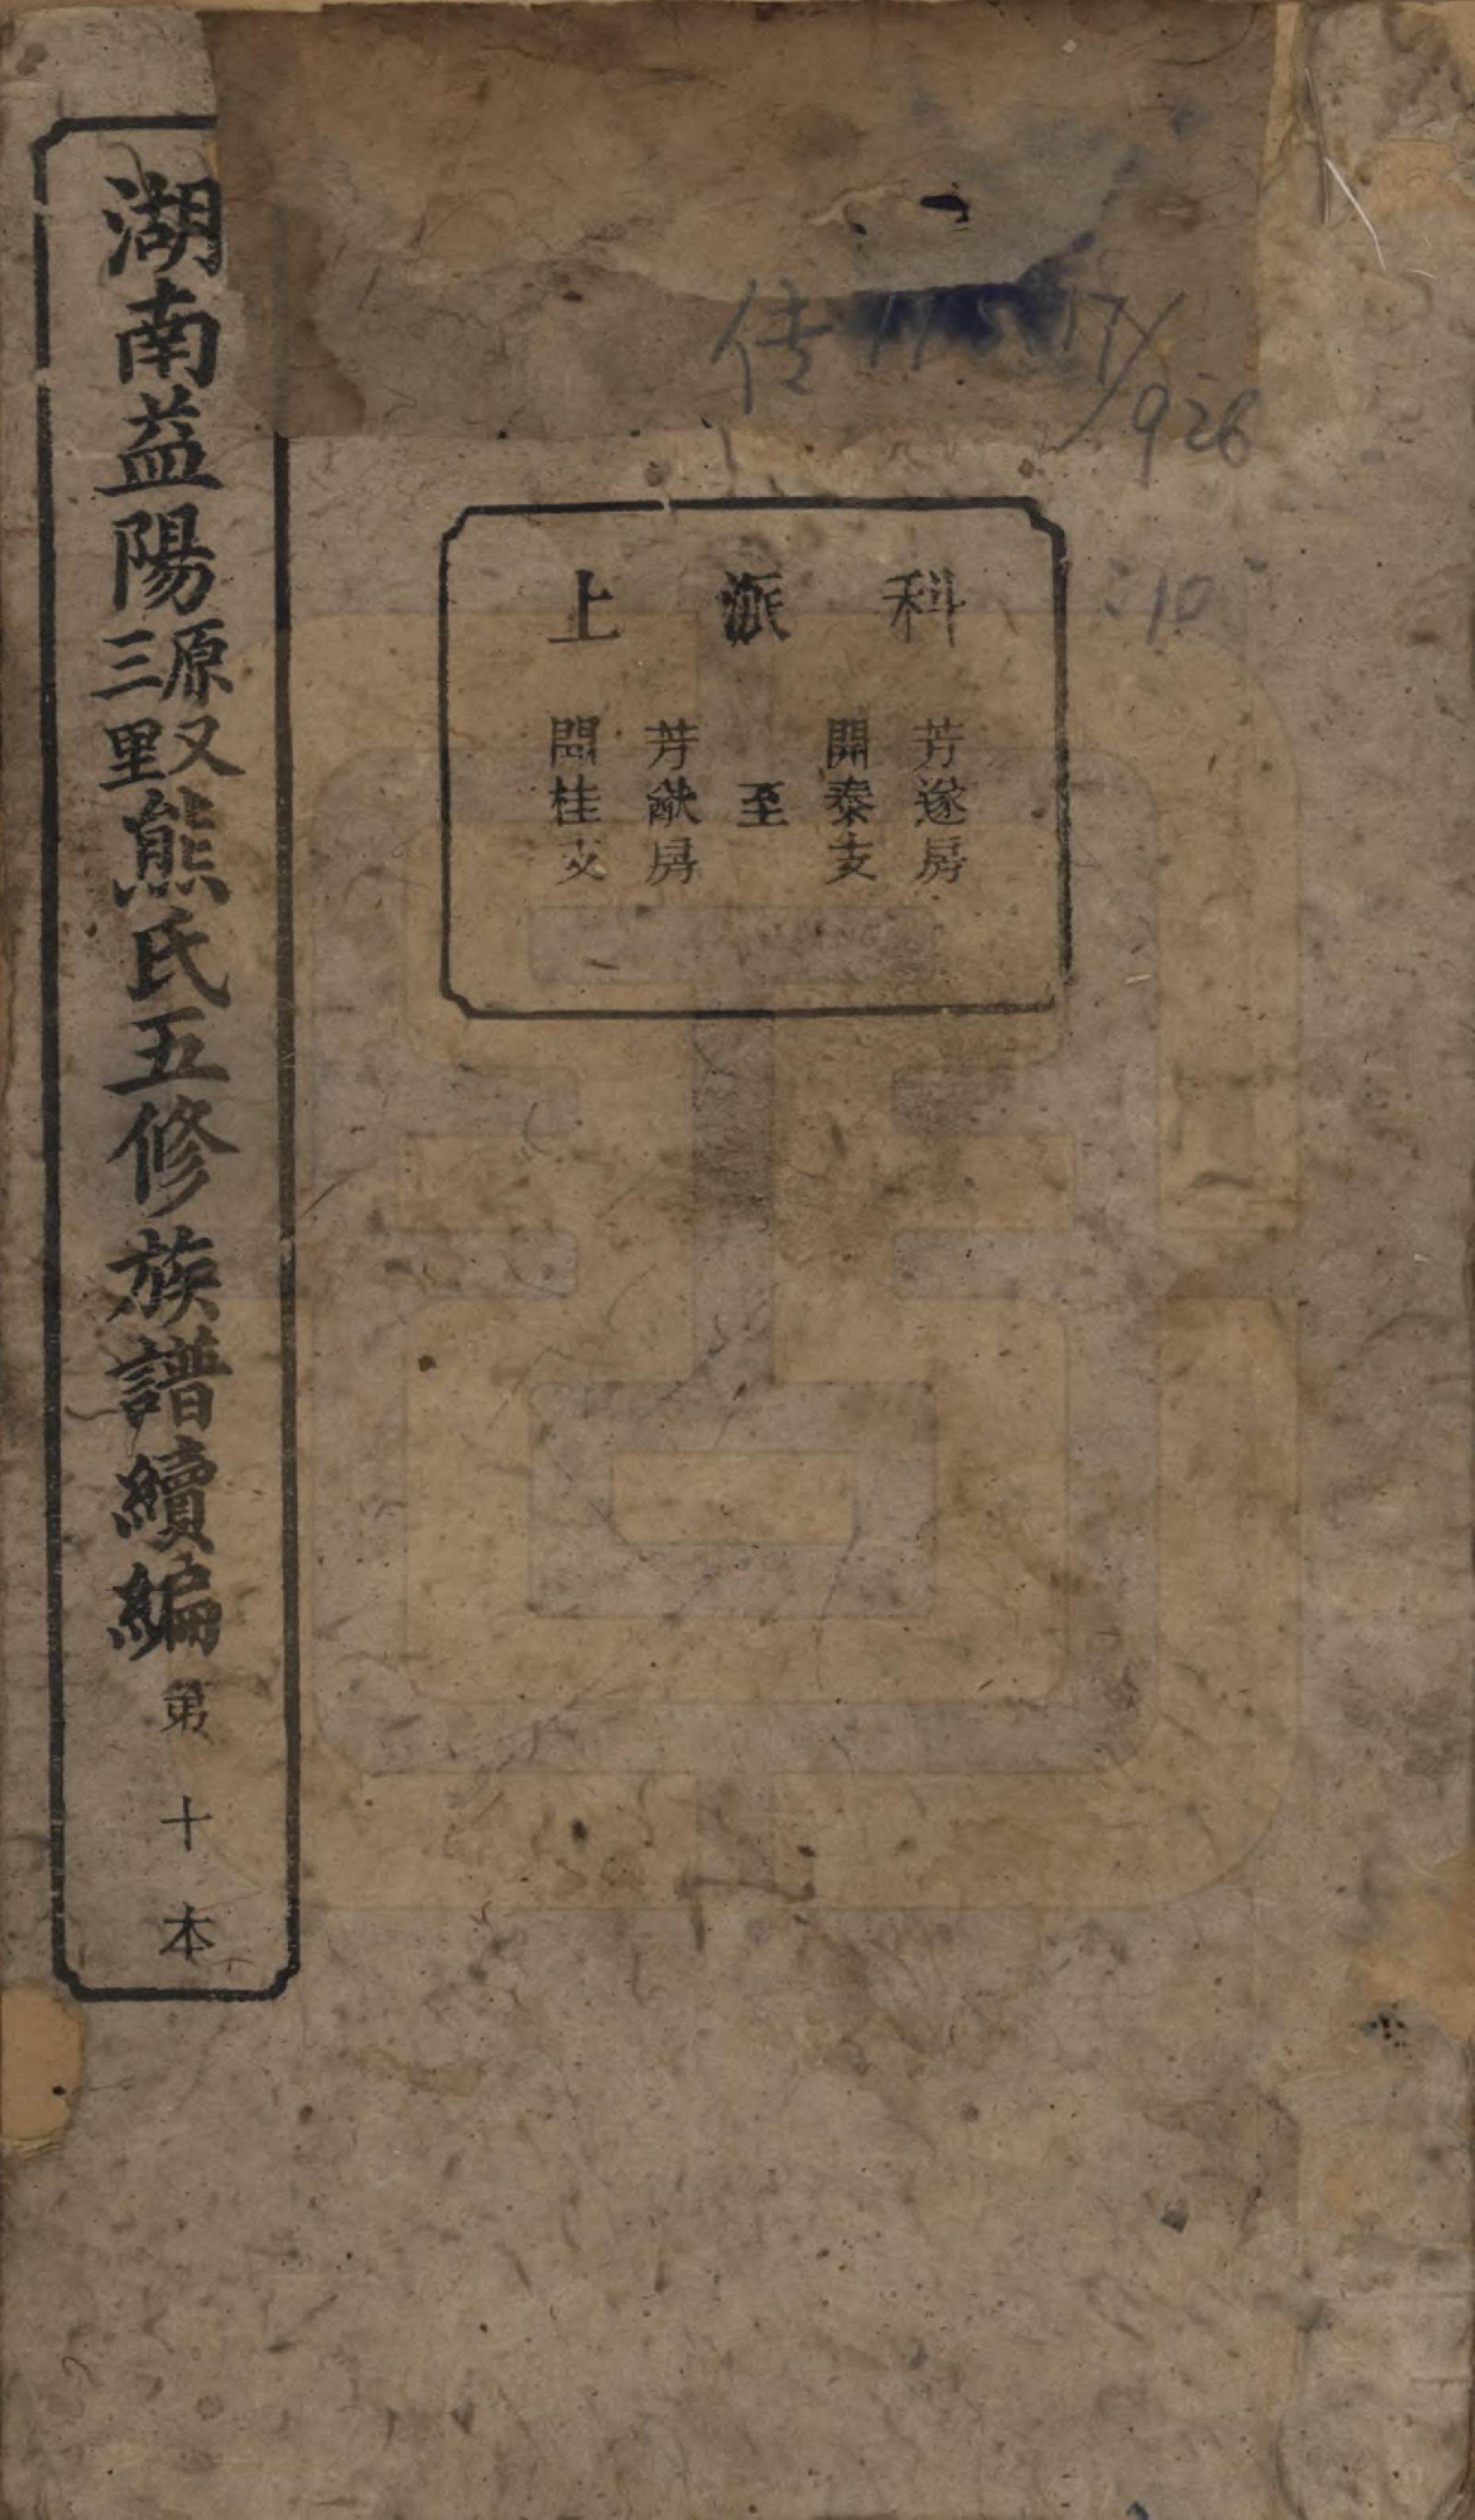 科派上
芳遂房
開泰支
至
芳猷房
開桂支
湖南益陽源又三里熊氏五修族譜續編第十本
传
926
:10